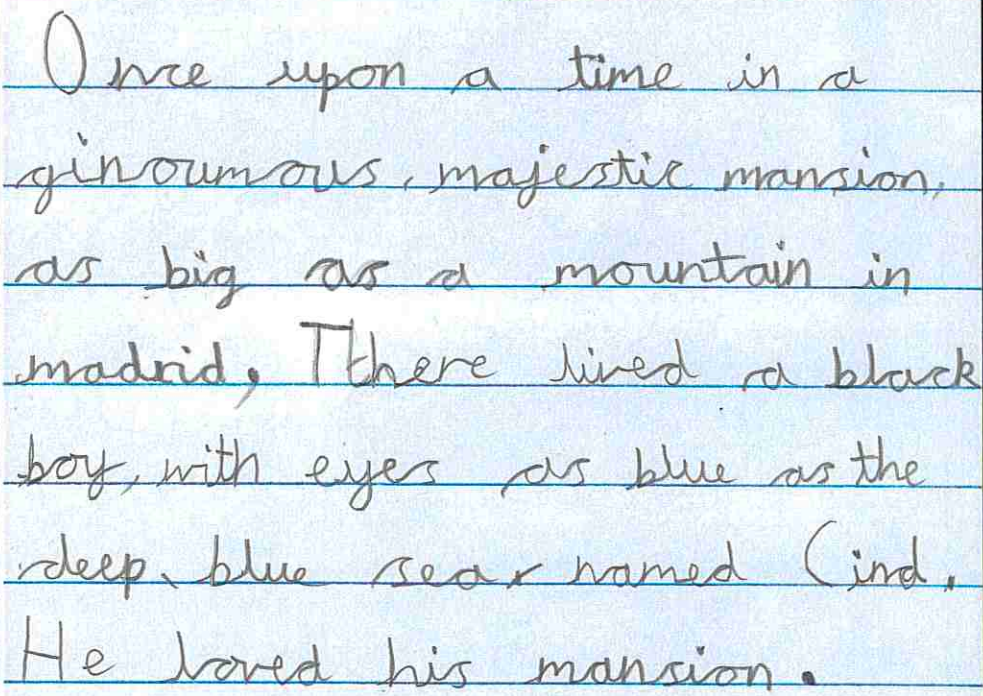 Once upon a time in a
ginoumous, majestic mansion,
as big as a mountain in
madrid, Tthere lived a black
boy, with eyes as blue as the
deep, blue sea, named Cind.
He loved his mansion.